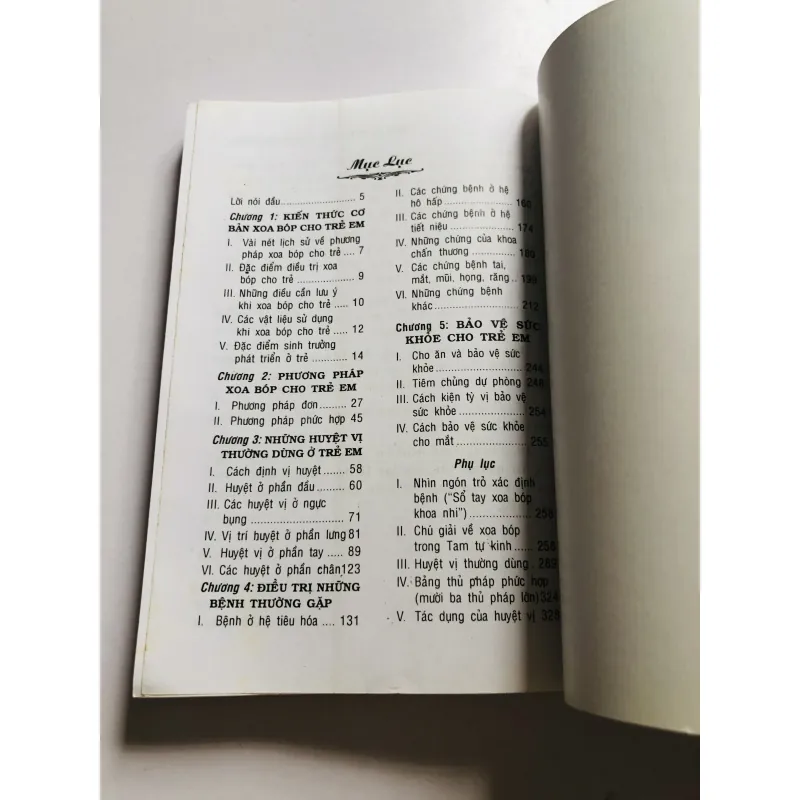 Mục Lục
Lời nói đầu........................ 5
Chương 1: KIẾN THỨC CƠ
BẢN XOA BÓP CHO TRẺ EM
I. Vài nét lịch sử về phương
pháp xoa bóp cho trẻ .... 7
II. Đặc điểm điều trị xoa
bóp cho trẻ .................. 9
III. Những điều cần lưu ý
khi xoa bóp cho trẻ ..... 10
IV. Các vật liệu sử dụng
khi xoa bóp cho trẻ ..... 12
V. Đặc điểm sinh trưởng
phát triển ở trẻ ............ 14
Chương 2: PHƯƠNG PHÁP
XOA BÓP CHO TRẺ EM
I. Phương pháp đơn ........ 27
II. Phương pháp phức hợp 45
Chương 3: NHỮNG HUYỆT VỊ
THƯỜNG DÙNG Ở TRẺ EM
I. Cách định vị huyệt....... 58
II. Huyệt ở phần đầu......... 60
III. Các huyệt vị ở ngực
bụng ............................ 71
IV. Vị trí huyệt ở phần lưng 81
V. Huyệt vị ở phần tay ..... 89
VI. Các huyệt ở phần chân123
Chương 4: ĐIỀU TRỊ NHỮNG
BỆNH THƯỜNG GẶP
I. Bệnh ở hệ tiêu hóa .... 131
II. Các chứng bệnh ở hệ
hô hấp ...................... 160
III. Các chứng bệnh ở hệ
tiết niệu ................... 174
IV. Những chứng của khoa
chấn thương .............
V. Các chứng bệnh tai,
mắt, mũi, họng, răng.. 199
VI. Những chứng bệnh
khác.......................... 212
Chương 5: BẢO VỆ SỨC
KHỎE CHO TRẺ EM
I. Cho ăn và bảo vệ sức
khỏe.......................... 244
II. Tiêm chủng dự phòng
III. Cách kiện tỳ vị bảo vệ
sức khỏe ................... 254
IV. Cách bảo vệ sức khỏe
cho mắt..................... 255
Phụ lục
I. Nhìn ngón trỏ xác định
bệnh (“Sổ tay xoa bóp
khoa nhi”).................. 258
II. Chú giải về xoa bóp
trong Tam tự kinh ..... 258
III. Huyệt vị thường dùng . 289
IV. Bảng thủ pháp phức hợp
(mười ba thủ pháp lớn) 324
V. Tác dụng của huyệt vị 328